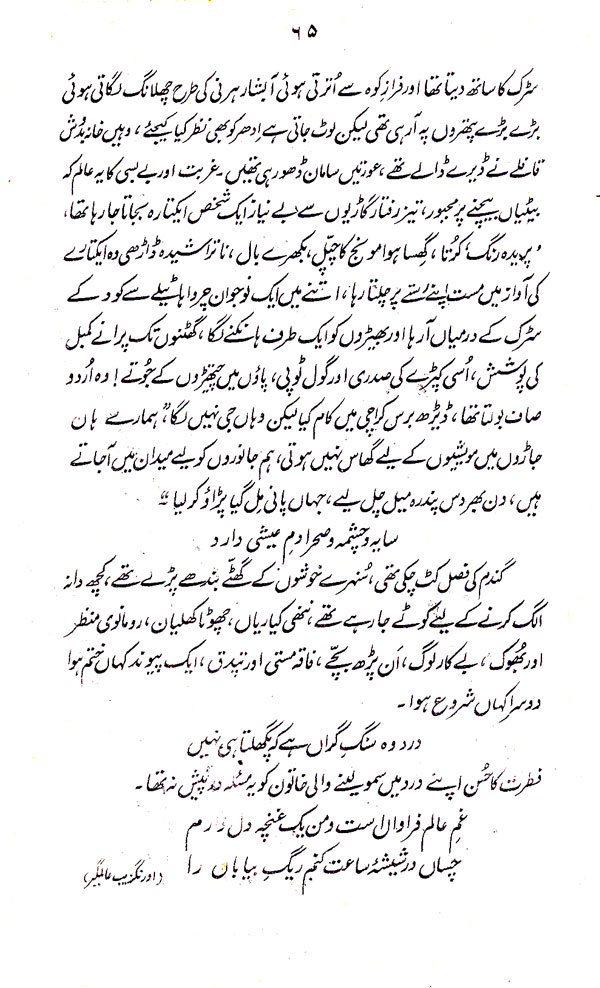 ۶۵
سڑک کا ساتھ دیتا تھا اور فرازِ کوہ سے اُترتی ہوئی آبشار ہرنی کی طرح چھلانگ لگاتی ہوئی
بڑے بڑے پتھروں پہ آ رہی تھی لیکن لوٹ جاتی ہے اِدھر کو بھی نظر کیا کیجئے، وہیں خانہ بدُش
قافلے نے ڈیرے ڈالے تھے، عورتیں سامان ڈھو رہی تھیں۔ غربت اور بے بسی کا یہ عالم کہ
بیٹیاں بیچنے پر مجبور، تیز رفتار گاڑیوں سے بے نیاز ایک شخص ایکتارہ بجاتا جا رہا تھا،
‘پریدہ رنگ’ کُرتا، گھِسا ہوا مونج کا چپّل، بکھرے بال، نا تراشیدہ ڈاڑھی وہ ایکتارے
کی آواز میں مست اپنے رستے پر چلتا رہا، اتنے میں ایک نوجوان چرواہا ٹیلے سے کود کے
سڑک کے درمیاں آ رہا اور بھیڑوں کو ایک طرف ہانکنے لگا، گھٹنوں تک پرانے کمبل
کی پوشش، اُسی کپڑے کی صدری اور گول ٹوپی، پاؤں میں چیتھڑوں کے جُوتے! وہ اُردو
صاف بولتا تھا، ڈیڑھ برس کراچی میں کام کیا لیکن وہاں جی نہیں لگا، “ہمارے ہاں
جاڑوں میں مویشیوں کے لیے گھاس نہیں ہوتی، ہم جانوروں کو لیے میدان میں آ جاتے
ہیں، دن بھر دس پندرہ میل چل لیے، جہاں پانی مِل گیا پڑاؤ کر لیا”
سایہ و چشمہ و صحرا دمِ عیشی دارد
گندم کی فصل کٹ چکی تھی، سُنہرے خوشوں کے گٹھے بندھے پڑے تھے، کچھ دانہ
الگ کرنے کے لیئے کُوٹے جا رہے تھے، ننھی کیاریاں، چھوٹا کھلیان، رومانوی منظر
اور بُھوک، بے کار لوگ، اَن پڑھ بچّے، فاقہ مستی اور تپدق، ایک پیوند کہاں ختم ہوا
دوسرا کہاں شروع ہوا۔
درد وہ سنگِ گراں ہے کہ پگھلتا ہی نہیں
فطرت کا حُسن اپنے درد میں سمو لینے والی خاتون کو یہ مسئلہ در پیش نہ تھا۔
غمِ عالم فراواں است و من یک غنچہ دل دارم
چساں در شیشۂ ساعت کنم ریگِ بیاباں را (اورنگزیب عالمگیر)